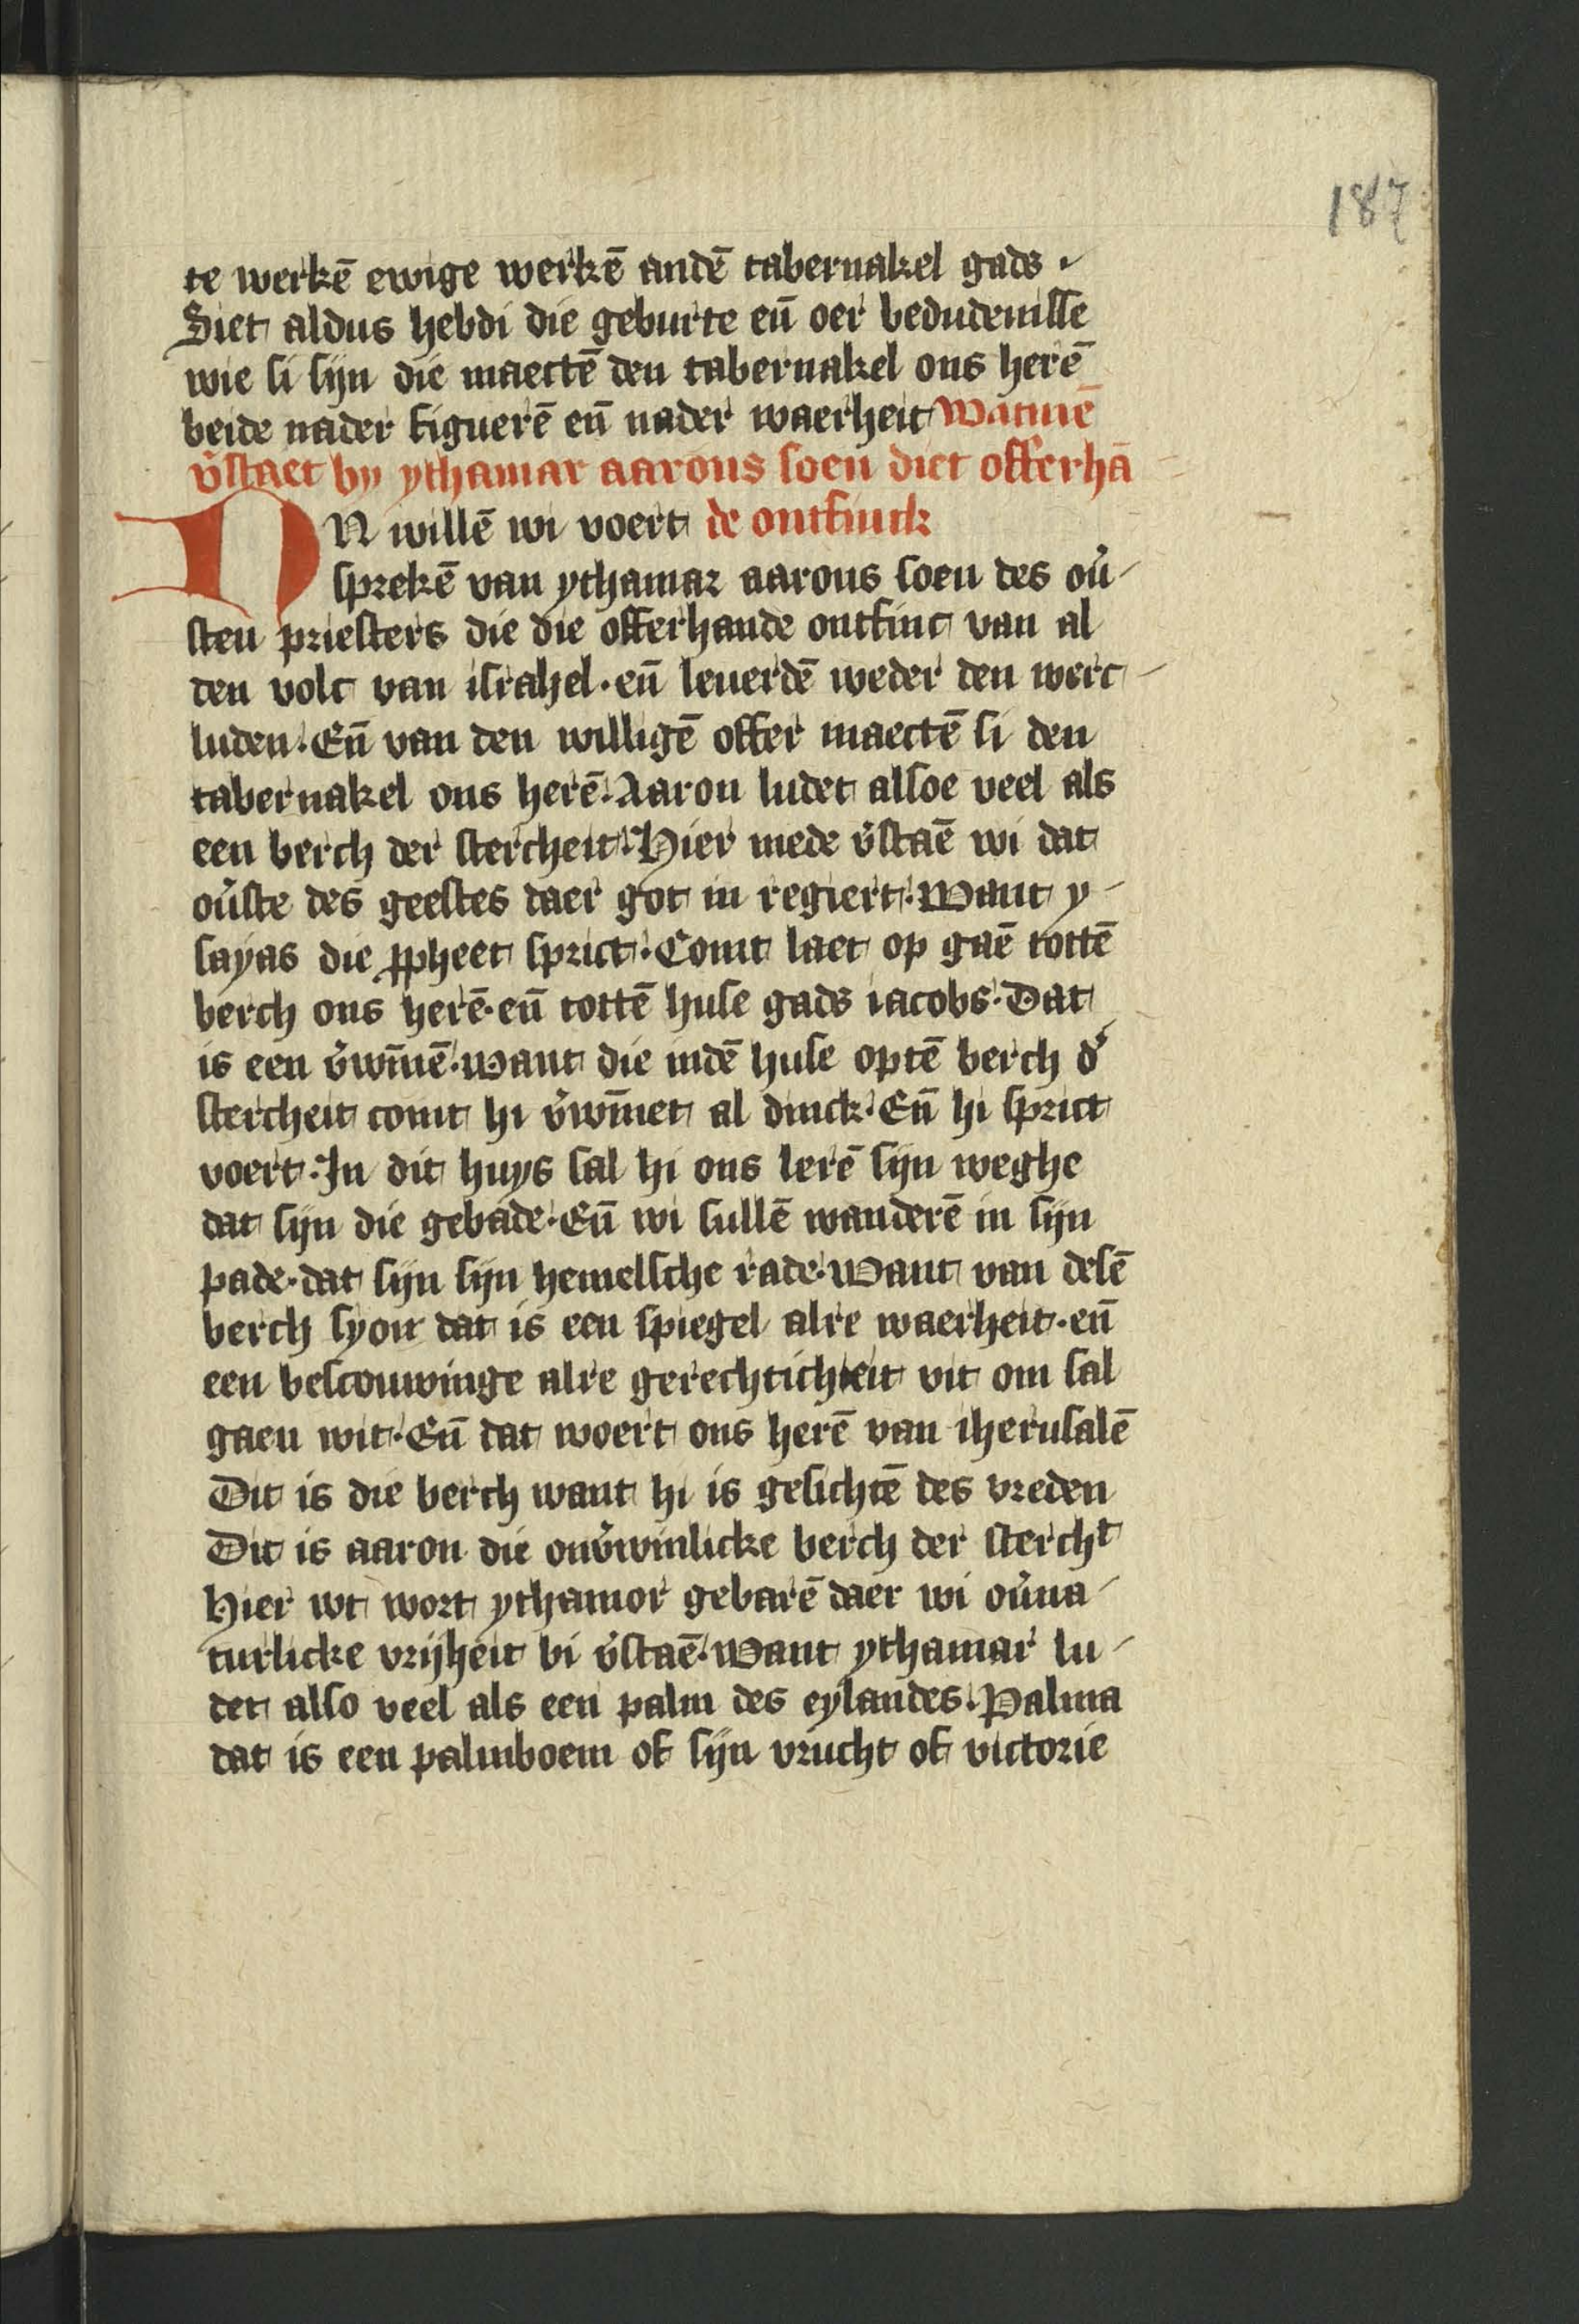 187
te werkē ewige werkē andē tabernakel gads
Siet aldus hebdi die geburte eñ oer bedudenisse
wie si sijn die maectē den tabernakel ons herē
beide nader figuerē eñ nader waerheit Watmē
v̉staet by ythamar aarons soen diet offerhā
NV willē wi voert de ontfinck
sprekē van ythamar aarons soen des oủ
sten priesters die die offerhande ontfinc van al
den volc van israhel · eñ leuerdē weder den werc
luden · Eñ van den willigē offer maectē si den
tabernakel ons herē · Aaron ludet alsoe veel als
een berch der stercheit · Hier mede v̉staē wi dat
oủste des geestes daer got in regiert · Want y
sayas die ꝓpheet sprict · Comt laet op gaē tottē
berch ons herē · eñ tottē huse gads iacobs · Dat
is een v̉wīnē · want die indē huse optē berch d̉
stercheit comt hi v̉wīnet al dinck · Eñ hi sprict
voert · In dit huys sal hi ons lerē sijn weghe
dat sijn die gebade · Eñ wi sullē wanderē in sijn
pade · dat sijn sijn hemelsche rade · Want van desē
berch syon dat is een spiegel alre waerheit · eñ
een bescouwinge alre gerechticheit vit om sal
gaen wit · Eñ dat woert ons herē van iherusalē
Dit is die berch want hi is gesichtē des vreden
Dit is aaron die onv̉winlicke berch der stercht
Hier wt wort ythamor gebarē daer wi oủna
turlicke vrijheit bi v̉staē · Want ythamar lu
det also veel als een palm des eylandes · Palma
dat is een palmboem of sijn vrucht of victorie